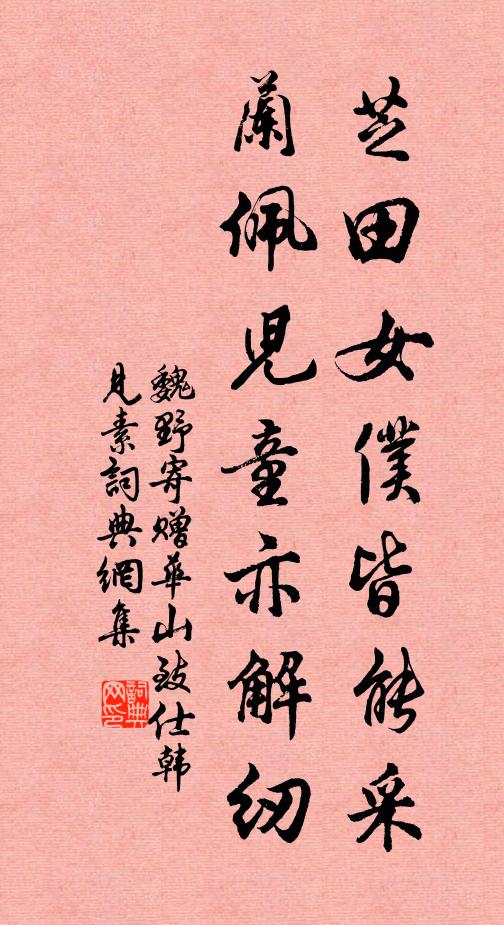 芝田女僕皆能采
蘭佩兒童亦解紉
魏野寄赠華山致仕韩
見素詞典網集
詞典
网印